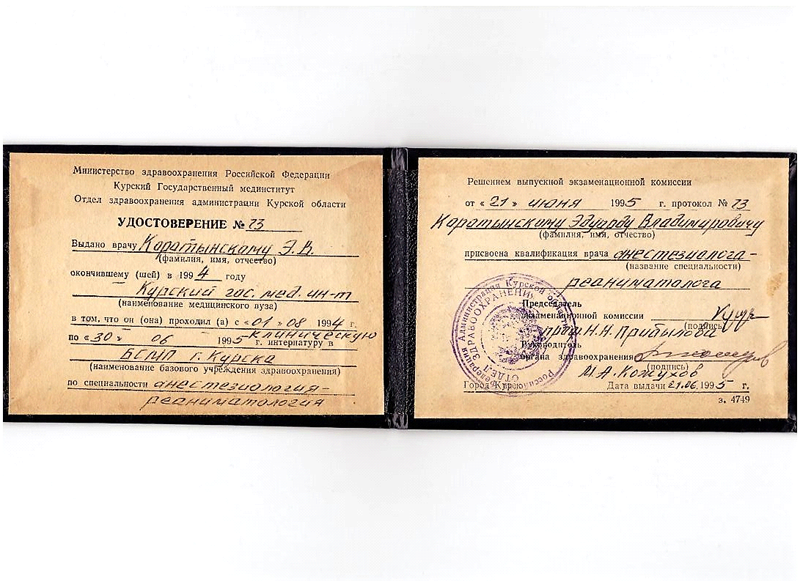 Министерство здравоохранения Российской Федерации
Курский Государственный мединститут
Отдел здравоохранения администрации Курской области
УДОСТОВЕРЕНИЕ № 73
Выдано врачу Каратынскому Э.В.
(фамилия, имя, отчество)
окончившему (шей) в 1994 году
Курский гос. мед. ин-т
(наименование медицинского вуза)
в том, что он (она) проходил (а) с «01» 08 1994 г.
клиническую
по «30» 06 1995 г. интернатуру в
БСМП г. Курска
(наименование базового учреждения здравоохранения)
по специальности анестезиология-
реаниматология
Решением выпускной экзаменационной комиссии
от «21» июня 1995 г. протокол № 73
Каратынскому Эдуарду Владимировичу
(фамилия, имя, отчество)
присвоена квалификация врача анестезиолога-
(название специальности)
реаниматолога
Председатель
экзаменационной комиссии
(подпись)
Н.Н. Прибылова
Руководитель
органа здравоохранения
(подпись)
М.А. Кожухов
Город Курск Дата выдачи 21.06.1995 г.
з. 4749